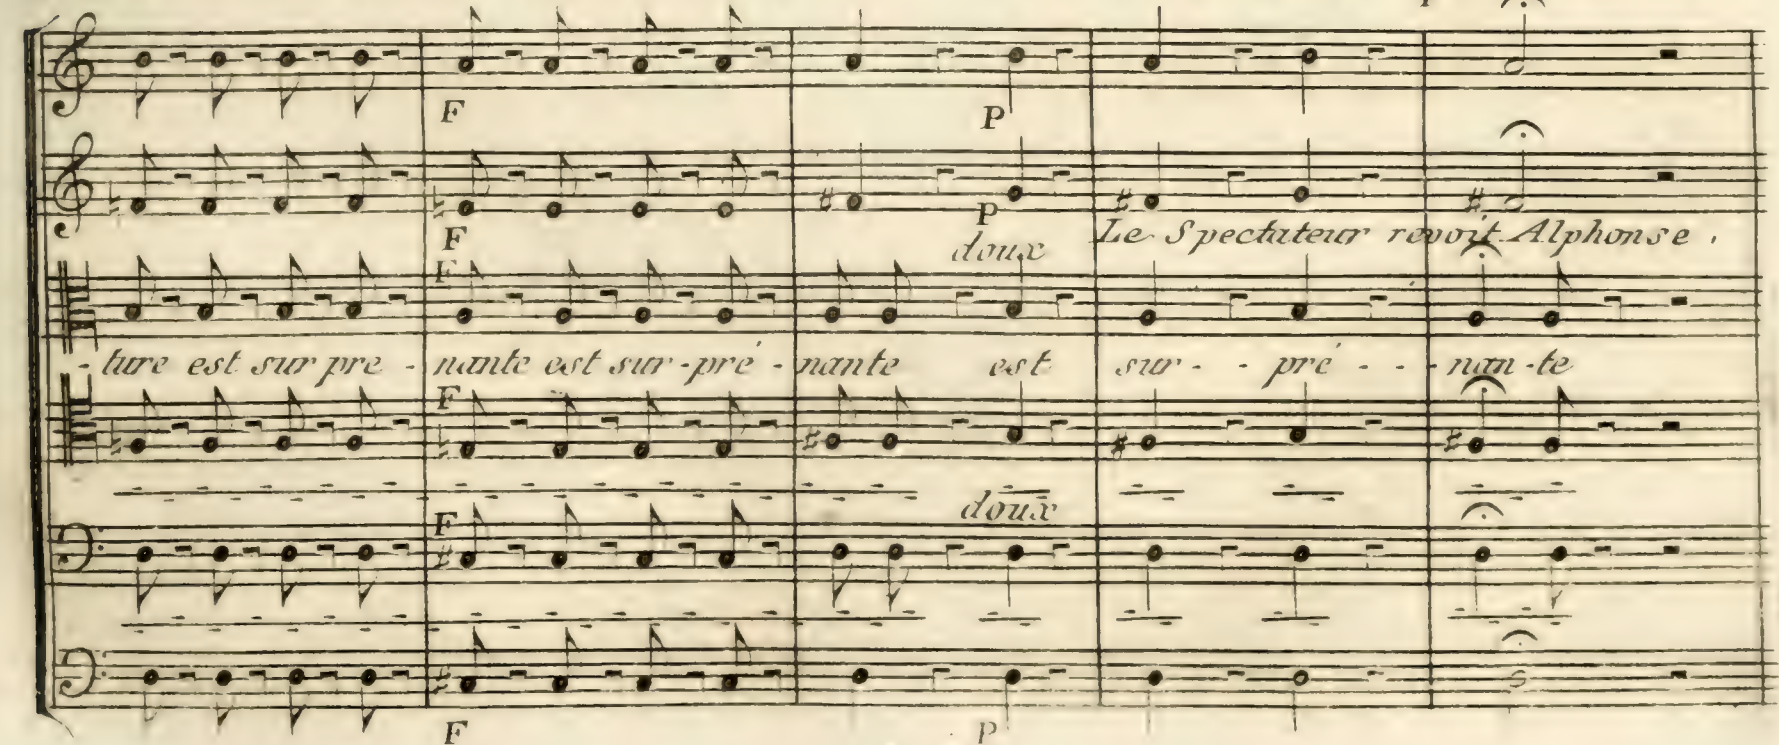 F P
P
F doux Le Spectateur revoit Alphonse.
F
- ture est sur pre - nante est sur - pré - nante est sur - - pré - - - nan - te
F
doux
F
F P